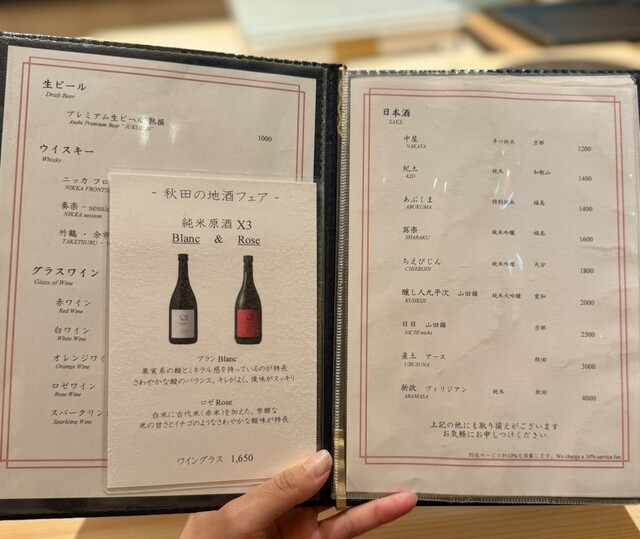 生ビール
Draft Beer
プレミアム生ビール 熟撰
Asahi Premium Beer "JUKUSEN"
1000
ウイスキー
Whisky
ニッカ フロ
NIKKA FRONTI
奏楽 - session
NIKKA session
竹鶴 ・ 余市
TAKETSURU
グラスワイン
Glass of Wine
赤ワイン
Red Wine
白ワイン
White Wine
オレンジワイ
Orange Wine
ロゼワイン
Rose Wine
スパークリン
Sparkling Wine
- 秋田の地酒フェア -
純米原酒 X3
Blanc & Rose
ブラン Blanc
果実系の酸とミネラル感を持っているのが特長
さわやかな酸のバランス、キレがよく、後味がスッキリ
ロゼ Rose
白米に古代米(赤米)を加えた、芳醇な
米の甘さとイチゴのようなさわやかな酸味が特長
ワイングラス 1,650
日本酒
SAKE
中屋 辛口純米 京都 1200
NAKAYA
紀土 純米 和歌山 1400
KID
あぶくま 特別純米 福島 1400
ABUKUMA
寫楽 純米吟醸 福島 1600
SHARAKU
ちえびじん 純米吟醸 大分 1800
CHIEBIJIN
醸し人九平次 山田錦 純米大吟醸 愛知 2000
KUHEIJI
日日 山田錦 京都 2500
NICHI nichi
産土 アース 3000
UBUSUNA
新政 ヴィリジアン 純米 秋田 4000
ARAMASA
上記の他にも取り揃えがございます
お気軽にお申しつけください
別途サービス料10%を頂戴します。We charge a 10% service fee.